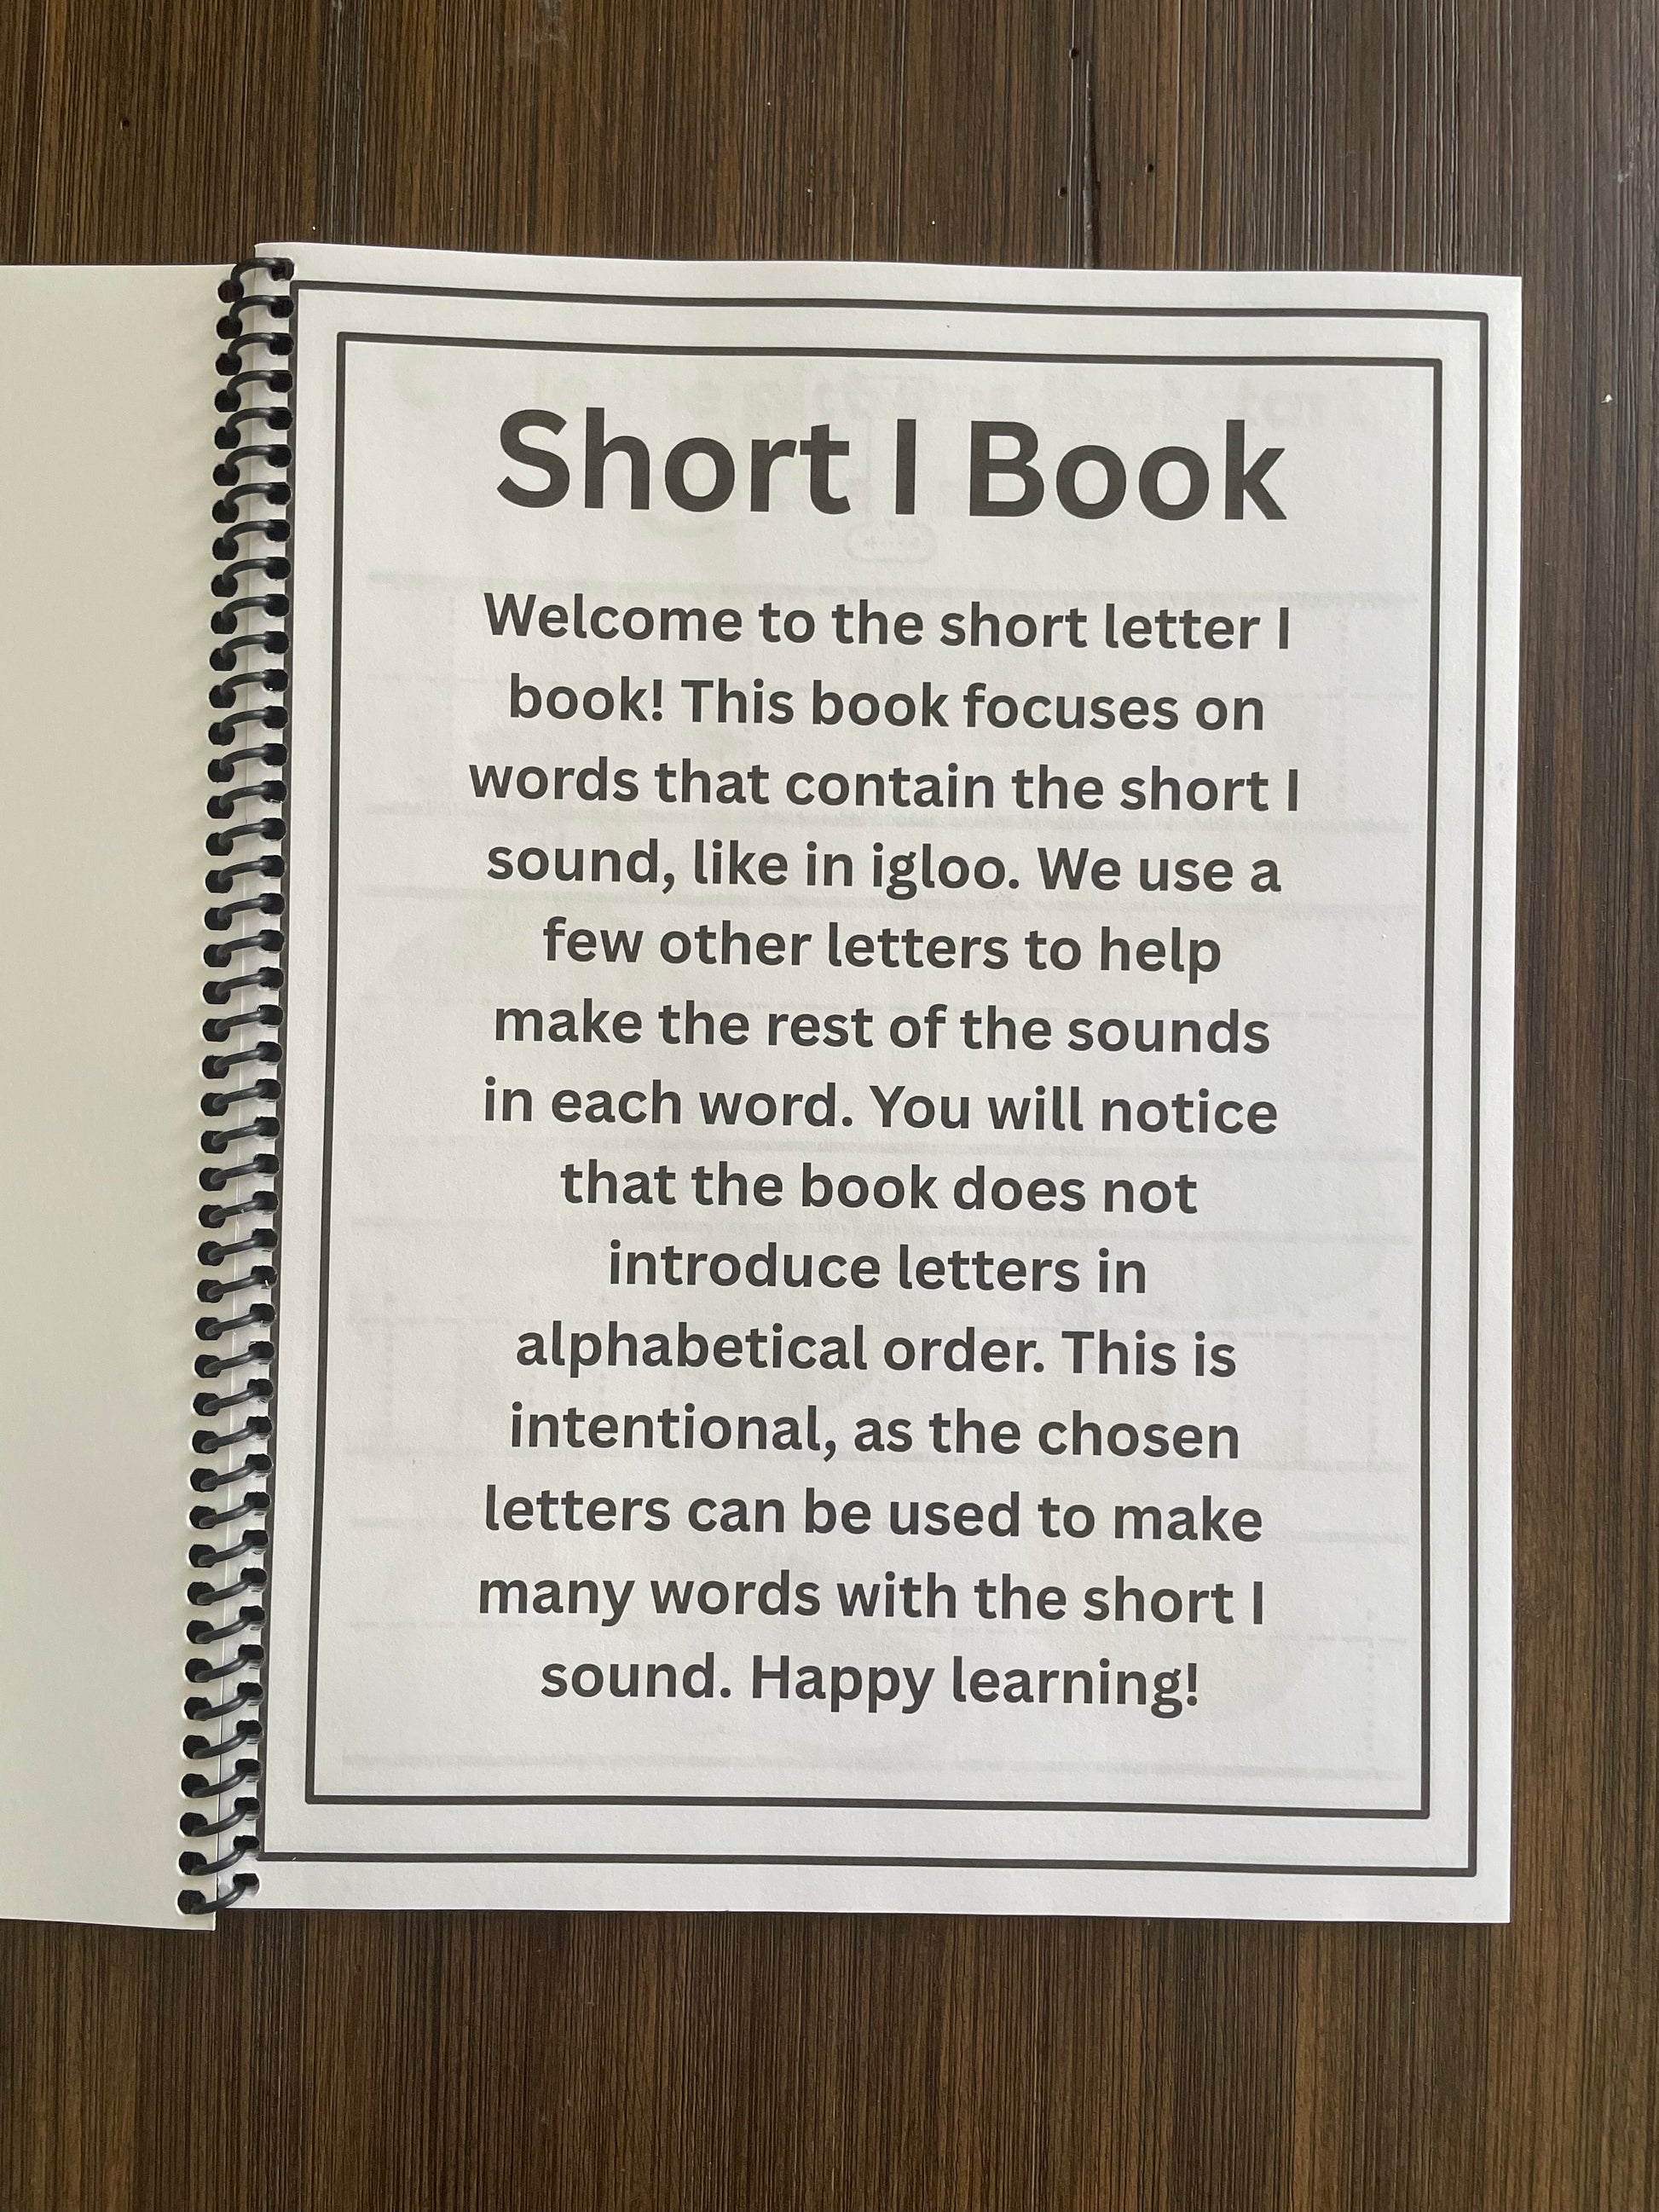 Short I Book
Welcome to the short letter I
book! This book focuses on
words that contain the short I
sound, like in igloo. We use a
few other letters to help
make the rest of the sounds
in each word. You will notice
that the book does not
introduce letters in
alphabetical order. This is
intentional, as the chosen
letters can be used to make
many words with the short I
sound. Happy learning!